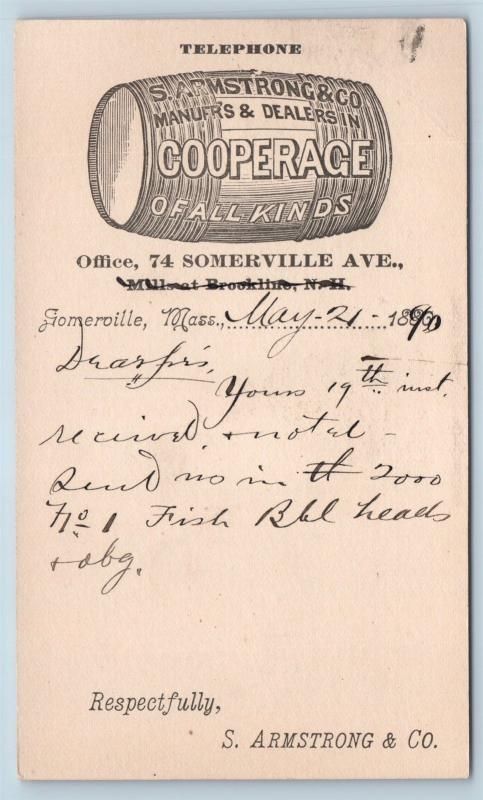 TELEPHONE
S. ARMSTRONG & CO
MANUF'RS & DEALERS IN
COOPERAGE
OF ALL KINDS
Office, 74 SOMERVILLE AVE.,
Mills at Brookline, N. H.
Somerville, Mass., May - 21 - 1890
Dear Sirs,
Yours 19th inst.
received & noted -
Send us in 2000
No 1 Fish Bbl heads
& obg.
Respectfully,
S. ARMSTRONG & CO.